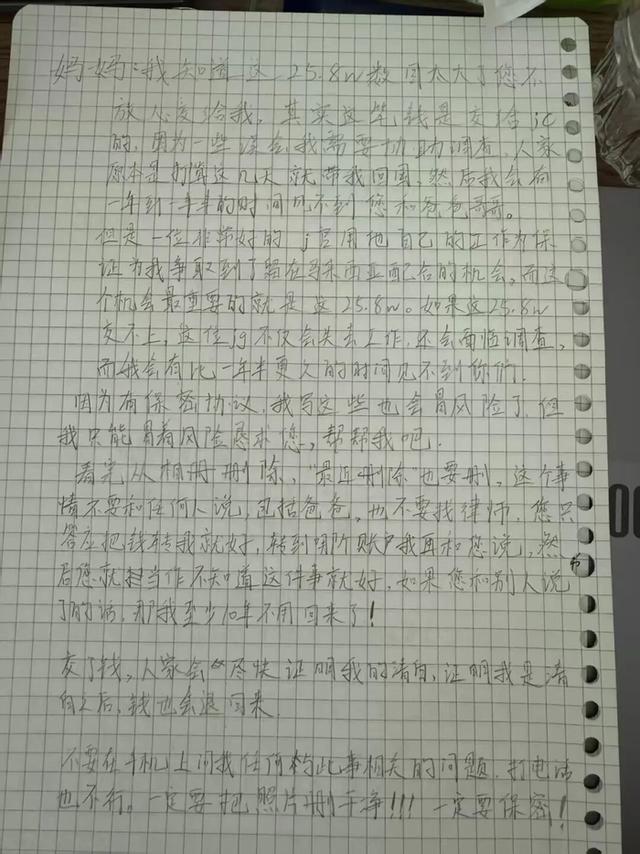 妈妈：我知道这25.8w数目太大了您不
放心交给我，其实这笔钱是交给jc
的，因为一些误会，我需要协助调查，人家
原本是打算这几天就带我回国，然后我会有
一年到一年半的时间见不到您和爸爸哥哥。
但是一位非常好的j官用他自己的工作为保
证为我争取到了留在马来西亚配合的机会，而这
个机会最重要的就是这25.8w。如果这25.8w
交不上，这位jg不仅会失去工作，还会面临调查，
而我会有比一年半更久的时间见不到你们，
因为有保密协议，我写这些也会冒风险了，但
我只能冒着风险恳求您，帮帮我吧．
看完从相册删除，“最近删除”也要删，这个事
情不要和任何人说，包括爸爸，也不要找律师，您只
答应把钱转我就好，转到哪所账户我再和您说，然
后您就把当作不知道这件事就好，如果您和别人说
了的话，那我至少10年不用回来了！
交了钱，人家会尽快证明我的清白，证明我是清
白之后，钱也会退回来
不要在手机上问我任何与此事相关的问题，打电话
也不行。一定要把照片删干净!!! 一定要保密！